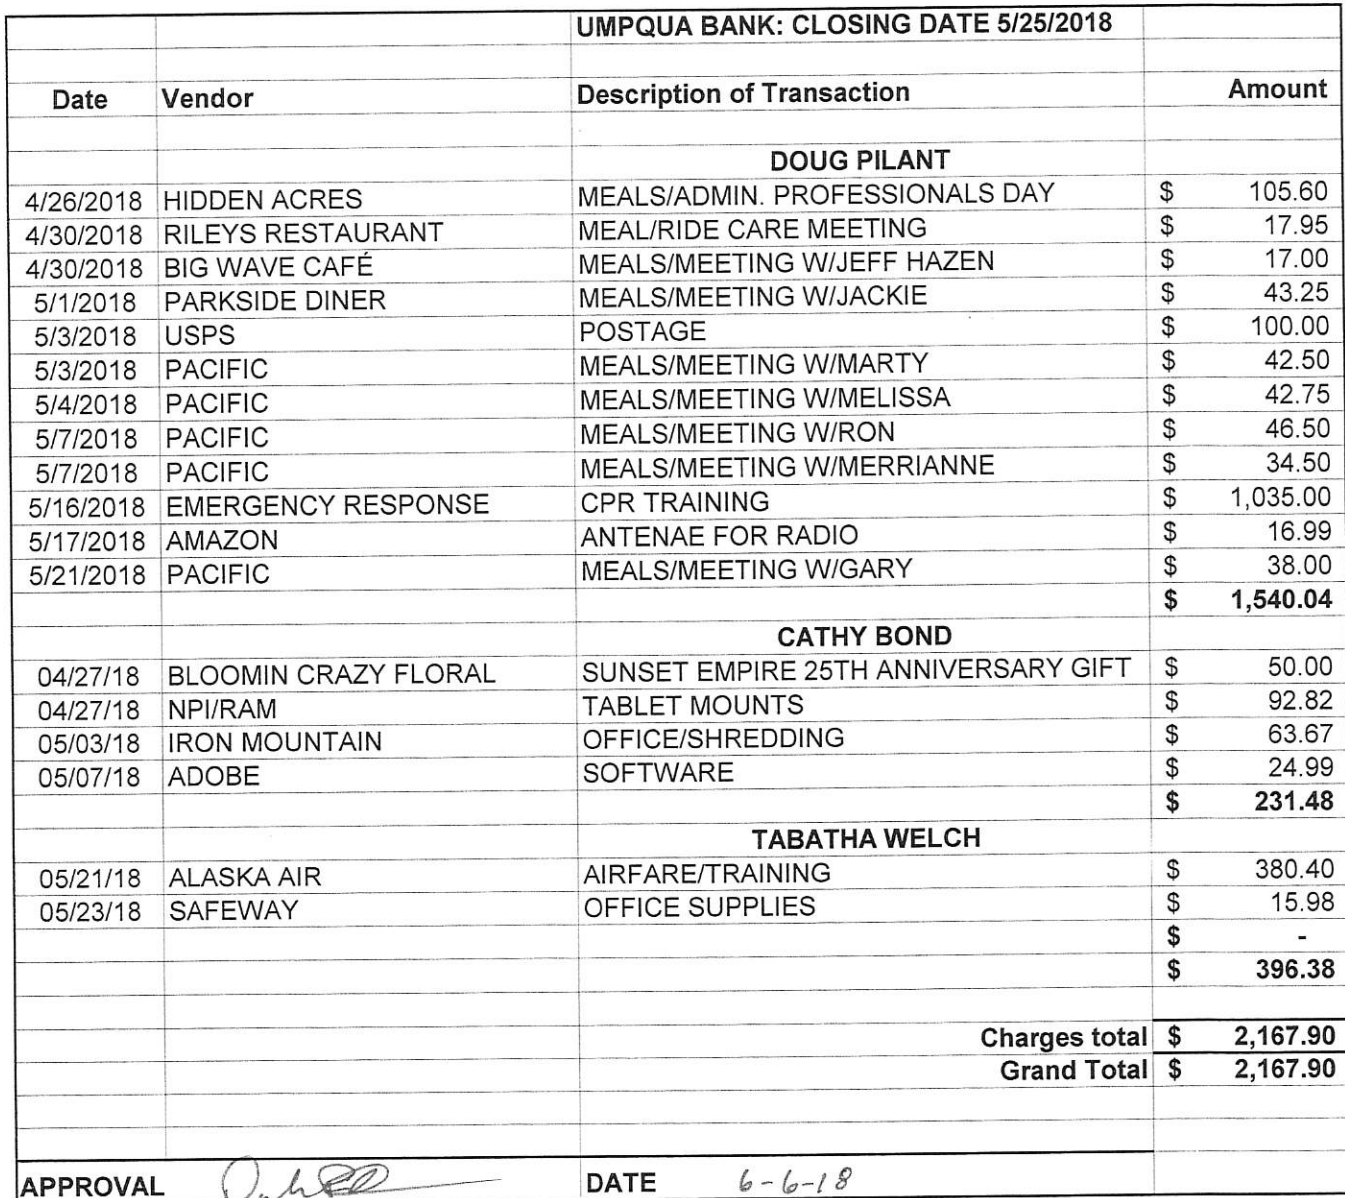 UMPQUA BANK: CLOSING DATE 5/25/2018
Date Vendor Description of Transaction Amount
DOUG PILANT
4/26/2018 HIDDEN ACRES MEALS/ADMIN. PROFESSIONALS DAY $ 105.60
4/30/2018 RILEYS RESTAURANT MEAL/RIDE CARE MEETING $ 17.95
4/30/2018 BIG WAVE CAFÉ MEALS/MEETING W/JEFF HAZEN $ 17.00
5/1/2018 PARKSIDE DINER MEALS/MEETING W/JACKIE $ 43.25
5/3/2018 USPS POSTAGE $ 100.00
5/3/2018 PACIFIC MEALS/MEETING W/MARTY $ 42.50
5/4/2018 PACIFIC MEALS/MEETING W/MELISSA $ 42.75
5/7/2018 PACIFIC MEALS/MEETING W/RON $ 46.50
5/7/2018 PACIFIC MEALS/MEETING W/MERRIANNE $ 34.50
5/16/2018 EMERGENCY RESPONSE CPR TRAINING $ 1,035.00
5/17/2018 AMAZON ANTENAE FOR RADIO $ 16.99
5/21/2018 PACIFIC MEALS/MEETING W/GARY $ 38.00
$ 1,540.04
CATHY BOND
04/27/18 BLOOMIN CRAZY FLORAL SUNSET EMPIRE 25TH ANNIVERSARY GIFT $ 50.00
04/27/18 NPI/RAM TABLET MOUNTS $ 92.82
05/03/18 IRON MOUNTAIN OFFICE/SHREDDING $ 63.67
05/07/18 ADOBE SOFTWARE $ 24.99
$ 231.48
TABATHA WELCH
05/21/18 ALASKA AIR AIRFARE/TRAINING $ 380.40
05/23/18 SAFEWAY OFFICE SUPPLIES $ 15.98
$ -
$ 396.38
Charges total $ 2,167.90
Grand Total $ 2,167.90
APPROVAL DATE 6-6-18